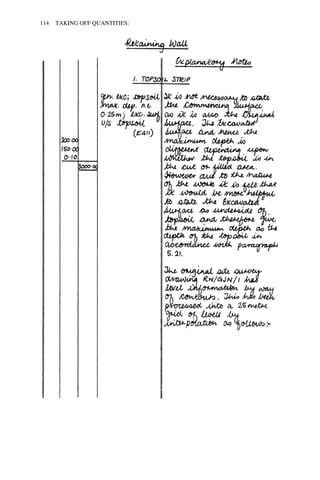 114 TAKING OFF QUANTITIES:
Retaining Wall
Explanatory Notes
1. TOPSOIL STRIP
Gen. exc; topsoil
max. dep. n.e
0·25m; Exc. Surf
U/S topsoil
(E411)
200·00
150·00
0·10
3000·00
It is not necessary to state
the Commencing Surface
as it is also the Original
Surface. The Excavated
Surface and hence the
maximum depth is
different depending upon
whether the topsoil is in
the cut or filled area.
However due to the nature
of the work it is felt that
it would be more helpful
to state the Excavated
Surface as underside of
topsoil and therefore give
the maximum depth as the
depth of the topsoil in
accordance with paragraph
5.21.
The original site survey
drawing RW/GJN/1 had
level information by way
of contours. This has been
processed into a 25 metre
grid of levels by
interpolation as follows:-